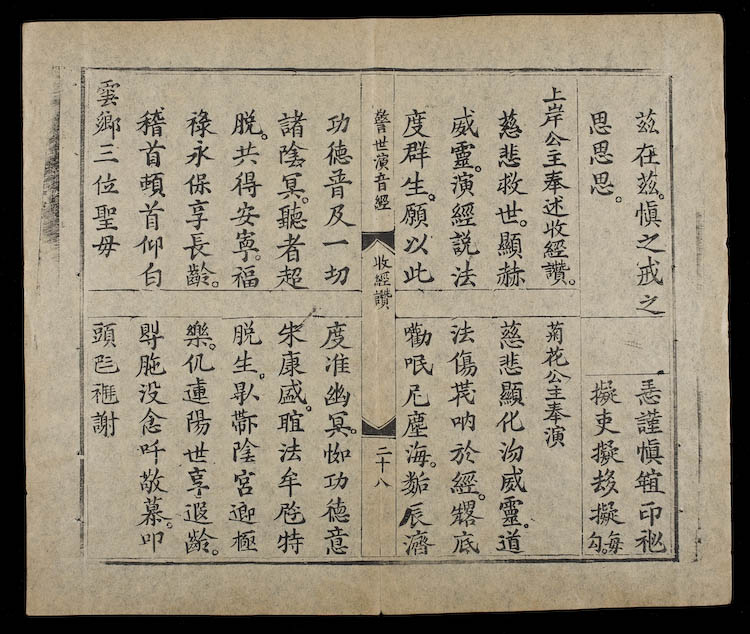 茲在茲。慎之戒之
思思思。
上岸公主奉述收經讚。
慈悲救世。顯赫
威靈。演經説法
度群生。願以此
謹慎印
擬吏擬擬每勾。
菊花公主奉演
慈悲顯化威靈。道
法傷吶於經。底
勸氓尼塵海。辰濟
警世演音經
收經讚
二十八
功德普及一切
諸陰冥。聽者超
脱。共得安寧。福
祿永保享長齡。
稽首頓首仰白
雲鄉三位聖母
度准幽冥。功德意
朱康盛。法牟特
脱生。陰宮迎極
樂。仉連陽世享遐齡。
没念吀敬慕。叩
頭謝